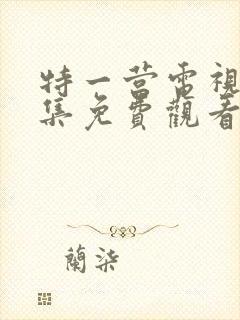 特一营電視
集免費觀看
蘭柒